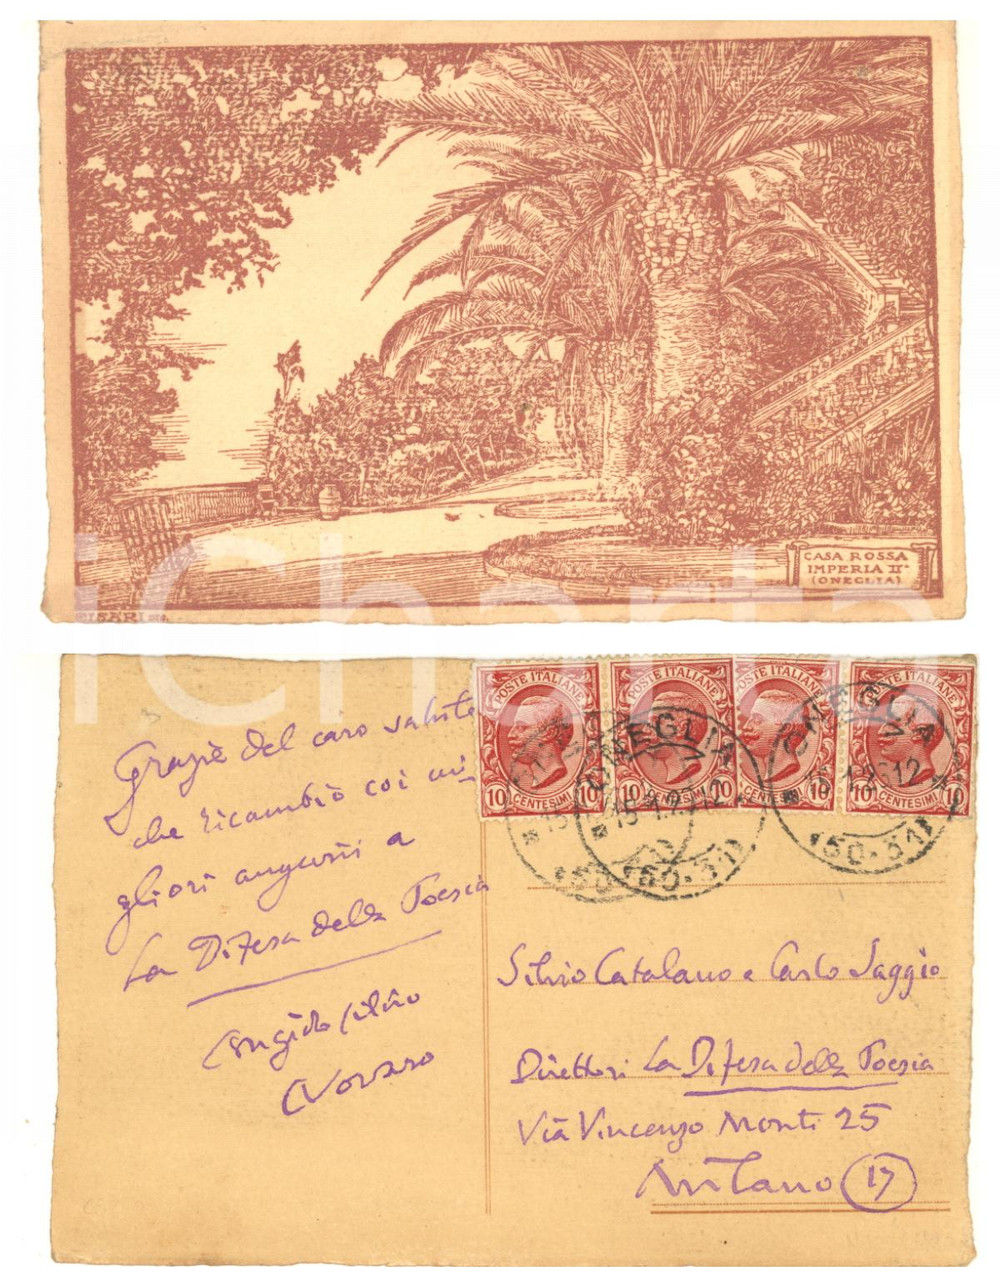 CASA ROSSA
IMPERIA IIª
(ONEGLIA)
iCharta
Grazie del caro saluto
che ricambio coi mi-
gliori auguri a
La Difesa della Poesia
Angiolo Silvio
Novaro
POSTE ITALIANE
10 CENTESIMI 10
POSTE ITALIANE
10 CENTESIMI 10
POSTE ITALIANE
10 CENTESIMI 10
POSTE ITALIANE
10 CENTESIMI 10
ONEGLIA
Silvio Catalano e Carlo Saggio
Direttori La Difesa della Poesia
Via Vincenzo Monti 25
Milano (17)